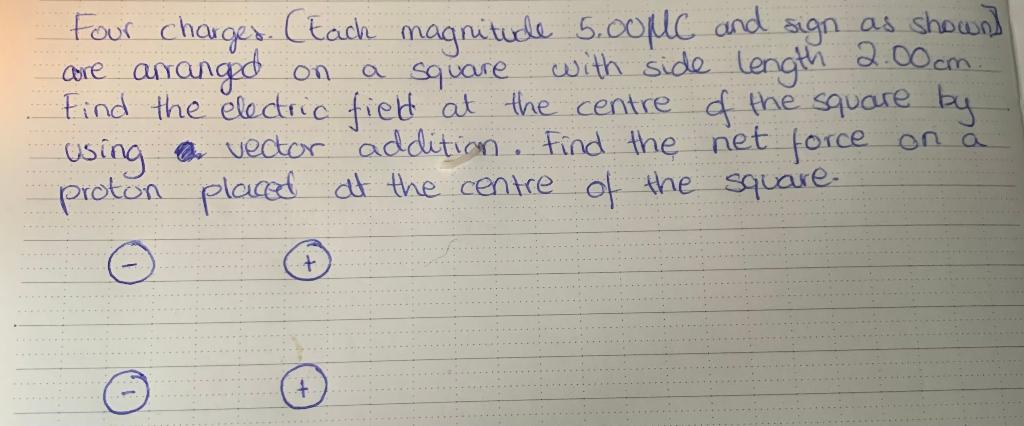 Four charges. (Each magnitude 5.00μC and sign as shown)
are arranged on a square with side length 2.00cm.
Find the electric field at the centre of the square by
using a vector addition. Find the net force on a
proton placed at the centre of the square.
- +
- +